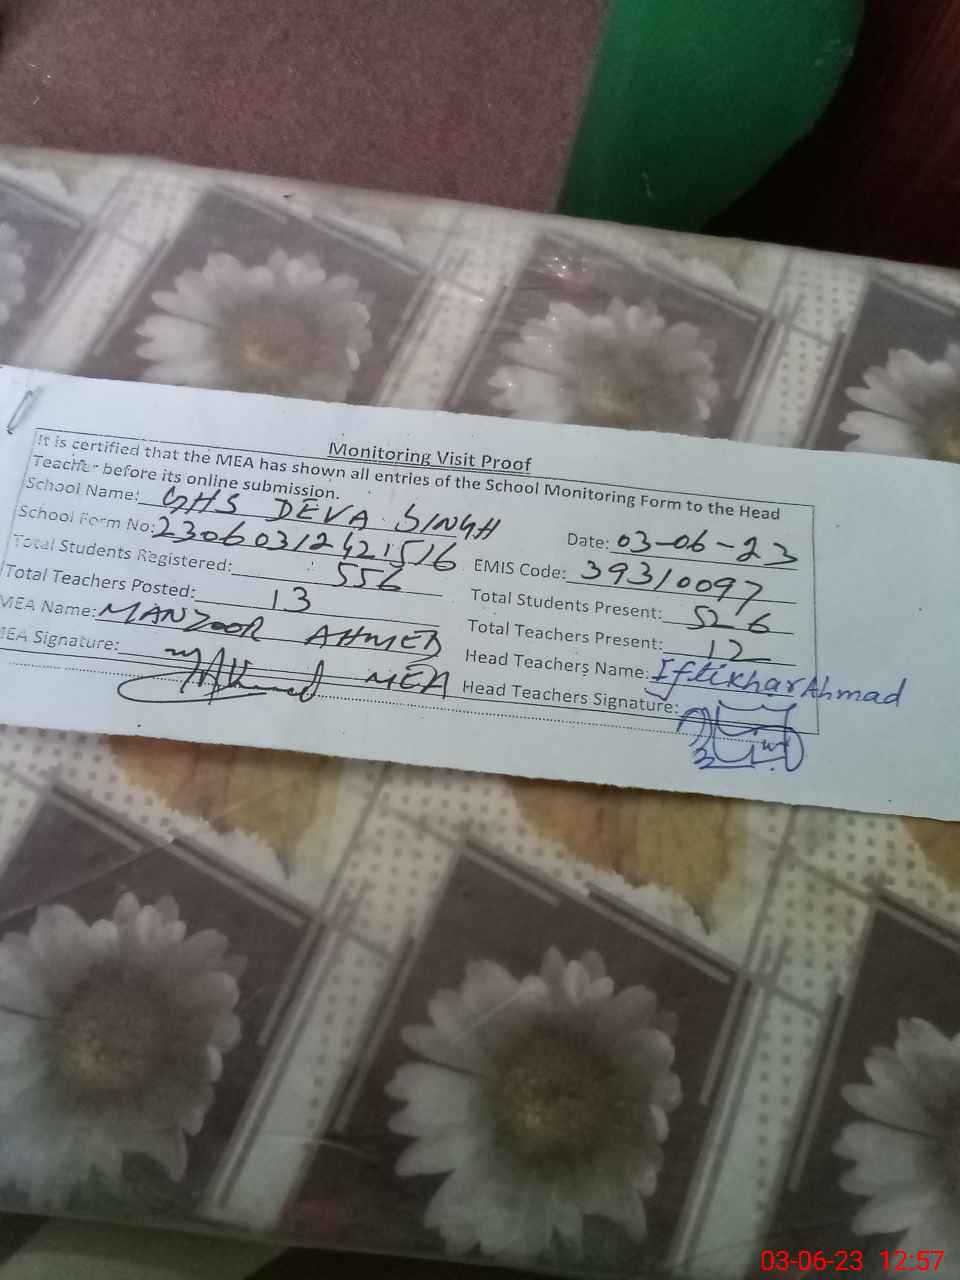 Monitoring Visit Proof
It is certified that the MEA has shown all entries of the School Monitoring Form to the Head
Teacher before its online submission.
School Name: GHS DEVA SINGH
Date: 03-06-23
School Form No: 23060312421516
EMIS Code: 39310097
Total Students Registered: 556
Total Students Present: 526
Total Teachers Posted: 13
Total Teachers Present: 12
MEA Name: MANZOOR AHMED
Head Teachers Name: Iftikhar Ahmad
MEA Signature: MEA
Head Teachers Signature:
03-06-23 12:57